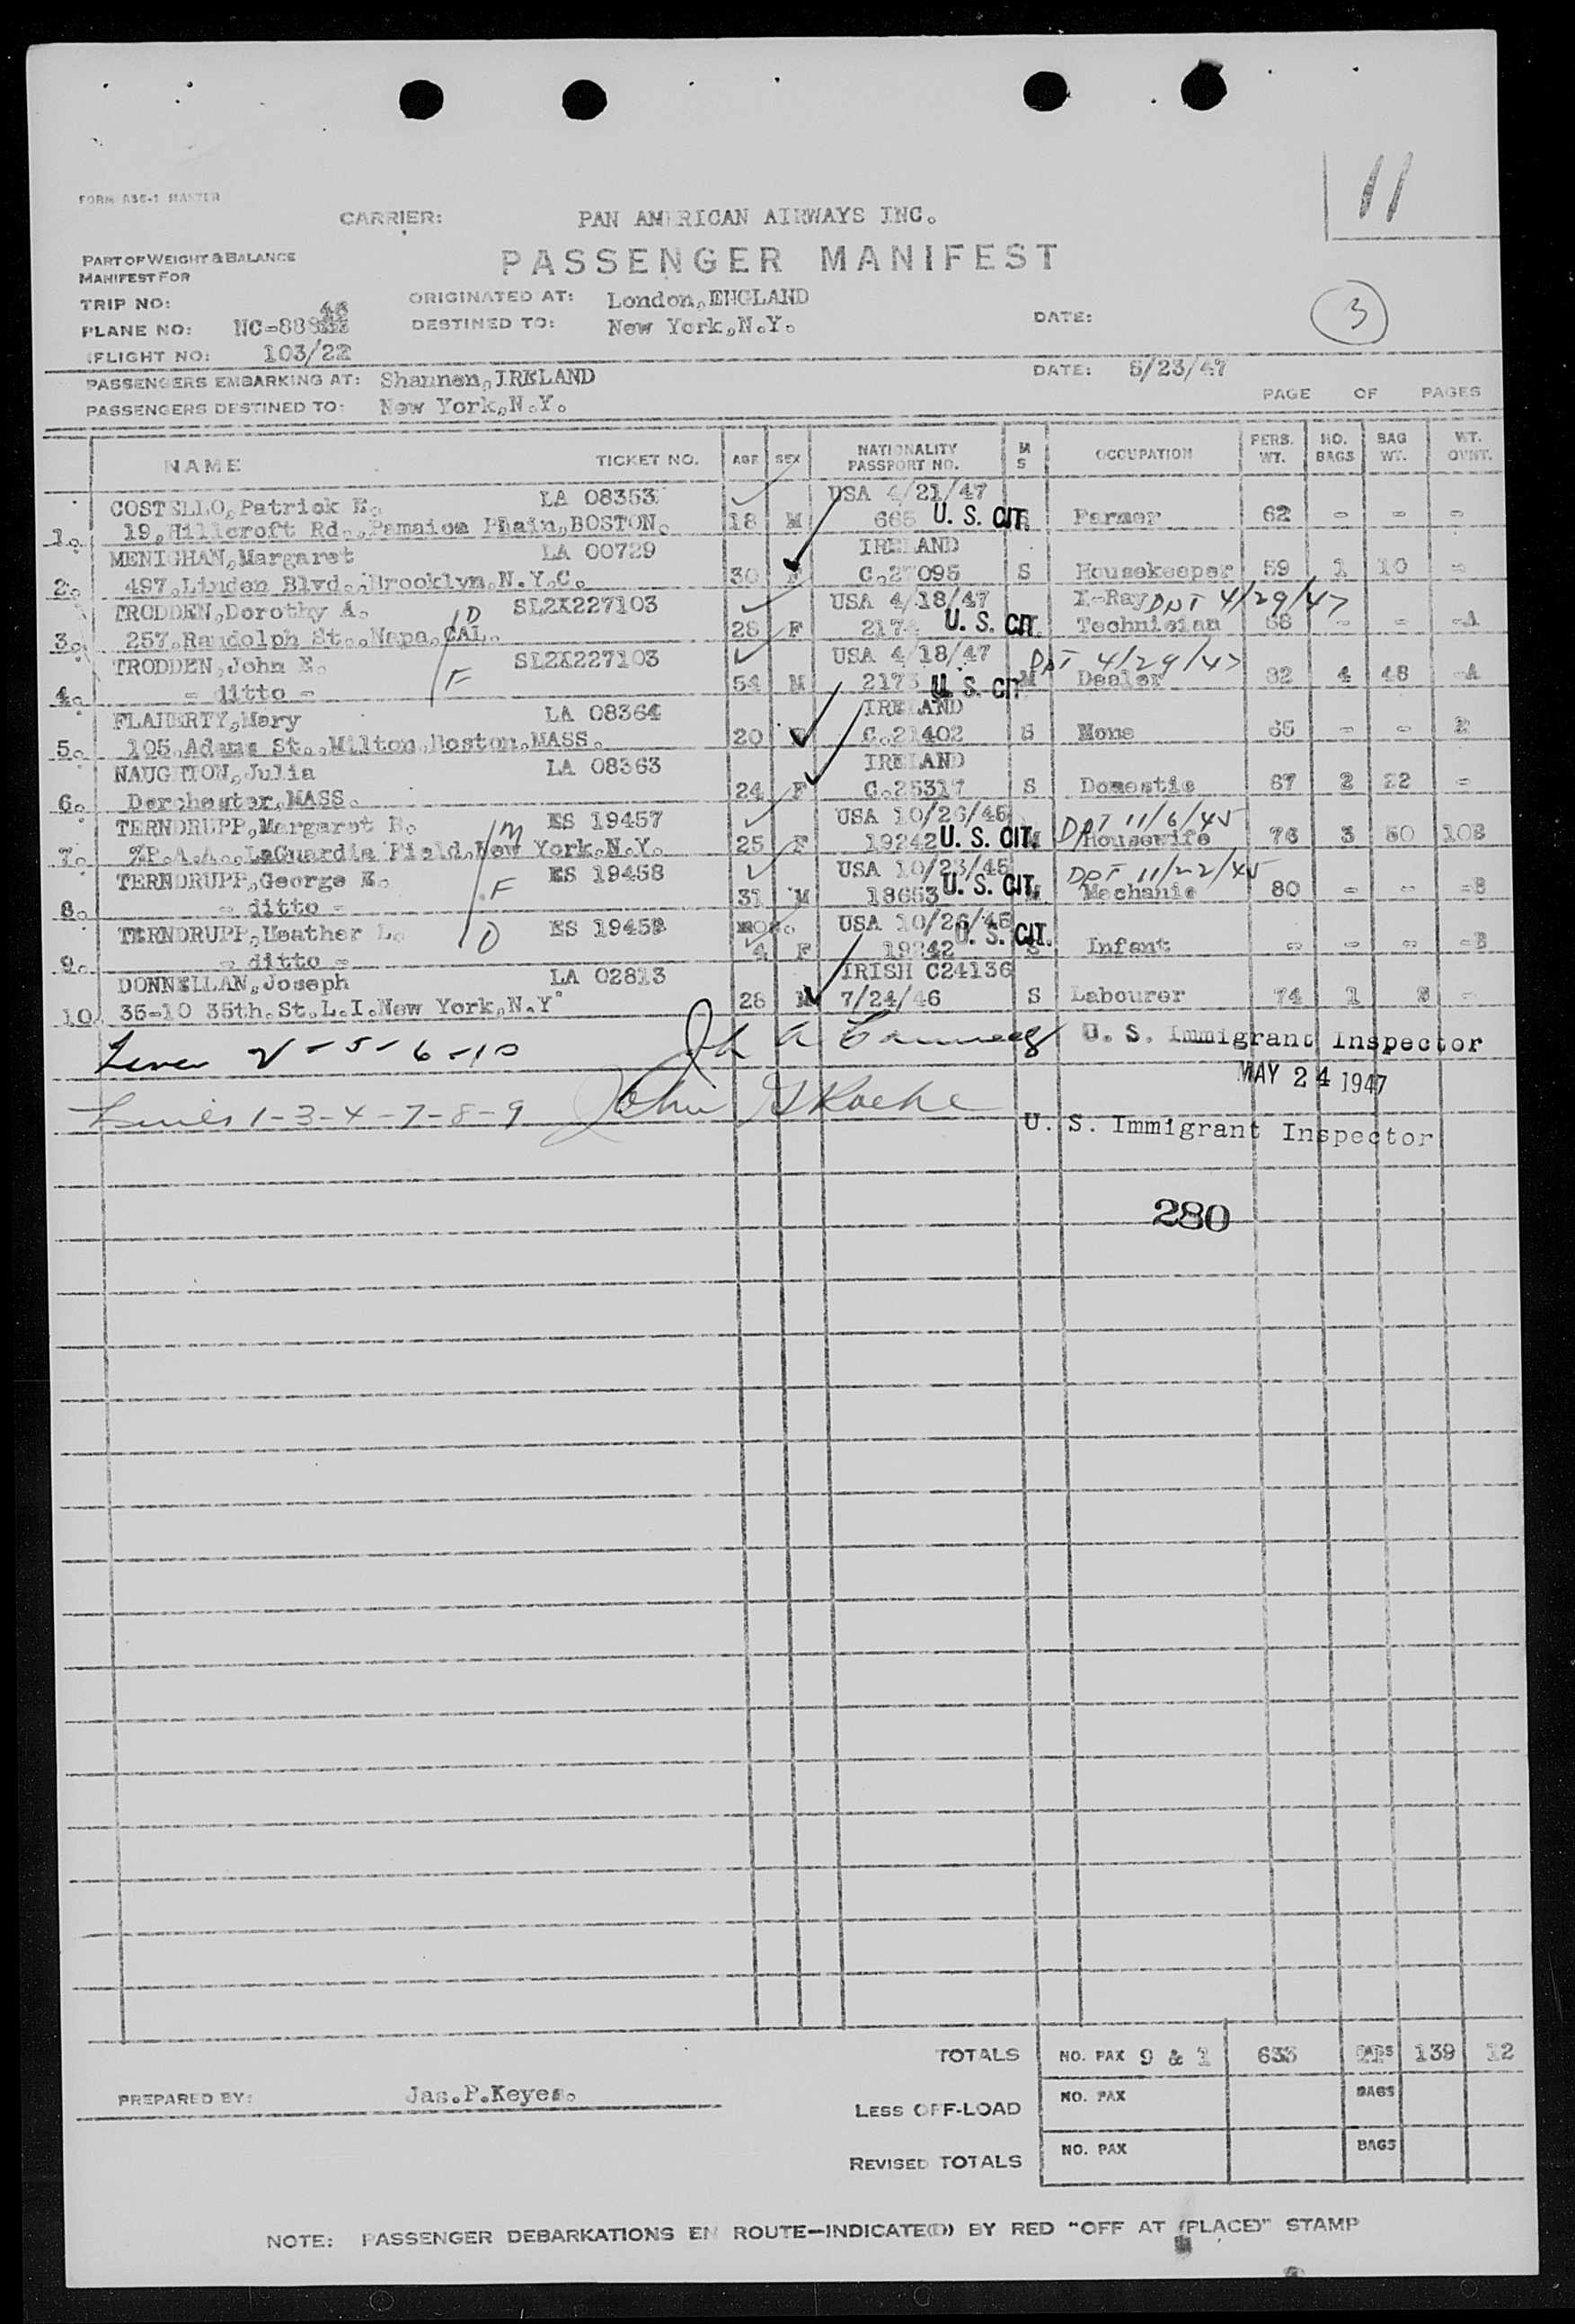 11
FORM ASC-1 MASTER
CARRIER: PAN AMERICAN AIRWAYS INC.
PASSENGER MANIFEST
PART OF WEIGHT & BALANCE
MANIFEST FOR
TRIP NO: ORIGINATED AT: London, ENGLAND
3
PLANE NO: NC-888 46 DESTINED TO: New York, N.Y. DATE:
FLIGHT NO: 103/22
PASSENGERS EMBARKING AT: Shannon, IRELAND DATE: 5/23/47
PASSENGERS DESTINED TO: New York, N.Y. PAGE OF PAGES
NAME TICKET NO. AGE SEX NATIONALITY PASSPORT NO. M S OCCUPATION PERS. WT. NO. BAGS BAG WT. WT. OVNT.
COSTELLO, Patrick E. LA 08353 USA 4/21/47
1. 19, Hillcroft Rd., Pamaica Phain, BOSTON. 18 M 665 U. S. CIT. Farmer 62 - - -
MENIGHAN, Margaret LA 00729 IRELAND
2. 497, Linden Blvd., Brooklyn, N.Y.C. 30 F C.27095 S Housekeeper 59 1 10 -
TRODDEN, Dorothy A. D SL2X227103 USA 4/18/47 X-Ray DPT 4/29/47
3. 257, Randolph St., Napa, CAL. 28 F 2174 U. S. CIT. Technician 58 - - -A
TRODDEN, John E. F SL2X227103 USA 4/18/47 DPT 4/29/47
4. - ditto - 54 M 2173 U. S. CIT. M Dealer 82 4 48 -A
FLAHERTY, Mary LA 08364 IRELAND
5. 105, Adams St., Milton, Boston, MASS. 20 F C.21402 S None 65 - - 2
NAUGHTON, Julia LA 08363 IRELAND
6. Dorchester, MASS. 24 F C.25317 S Domestic 67 2 22 -
TERNDRUPP, Margaret B. M ES 19457 USA 10/26/45 DPT 11/6/45
7. %P.A.A., LaGuardia Field, New York, N.Y. 25 F 19242 U. S. CIT. M Housewife 76 3 50 10B
TERNDRUPP, George E. F ES 19458 USA 10/23/45 DPT 11/22/45
8. - ditto - 31 M 18653 U. S. CIT. M Mechanic 80 - - -B
TERNDRUPP, Heather L. D ES 19459 mos. USA 10/26/45
9. - ditto - 4 F 19242 U. S. CIT. S Infant - - - -B
DONNELLAN, Joseph LA 02813 IRISH C24136
10. 35-10 35th. St. L.I. New York, N.Y. 28 M 7/24/46 S Labourer 74 1 -
Lines 2-5-6-10 U. S. Immigrant Inspector
MAY 24 1947
Lines 1-3-4-7-8-9 John J Roche
U. S. Immigrant Inspector
280
TOTALS NO. PAX 9 & 1 633 BAGS 139 12
PREPARED BY: Jas.P.Keyes.
LESS OFF-LOAD NO. PAX BAGS
REVISED TOTALS NO. PAX BAGS
NOTE: PASSENGER DEBARKATIONS EN ROUTE—INDICATE(D) BY RED "OFF AT (PLACE)" STAMP